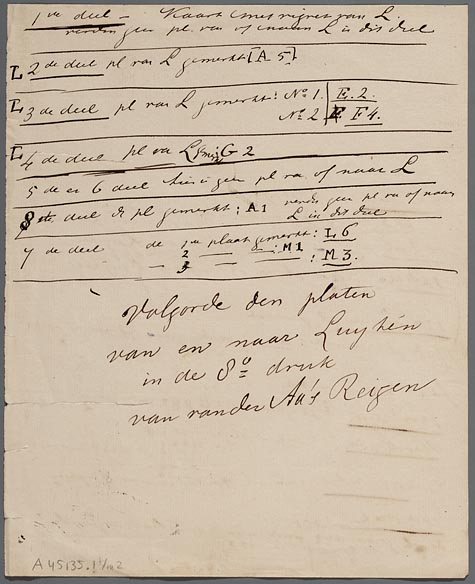 1ste deel — Kaart met vignet van L
verder geen pl. van of naar L in dit deel
L 2de deel pl van L gemerkt [A 5]
L 3de deel pl van L gemerkt: No 1. E. 2.
No 2 F 4.
L 4de deel pl van L G 2
5de en 6 deel hierin geen pl van of naar L
8ste deel de pl gemerkt: A1 verder geen pl van of naar
L in dit deel
7 de deel de 1ste plaat gemerkt: L 6
— 2 — — : M 1
— 3 — : M 3.
Volgorde den platen
van en naar Luyken
in de 8o druk
van van der Aa's Reizen
A 45135.